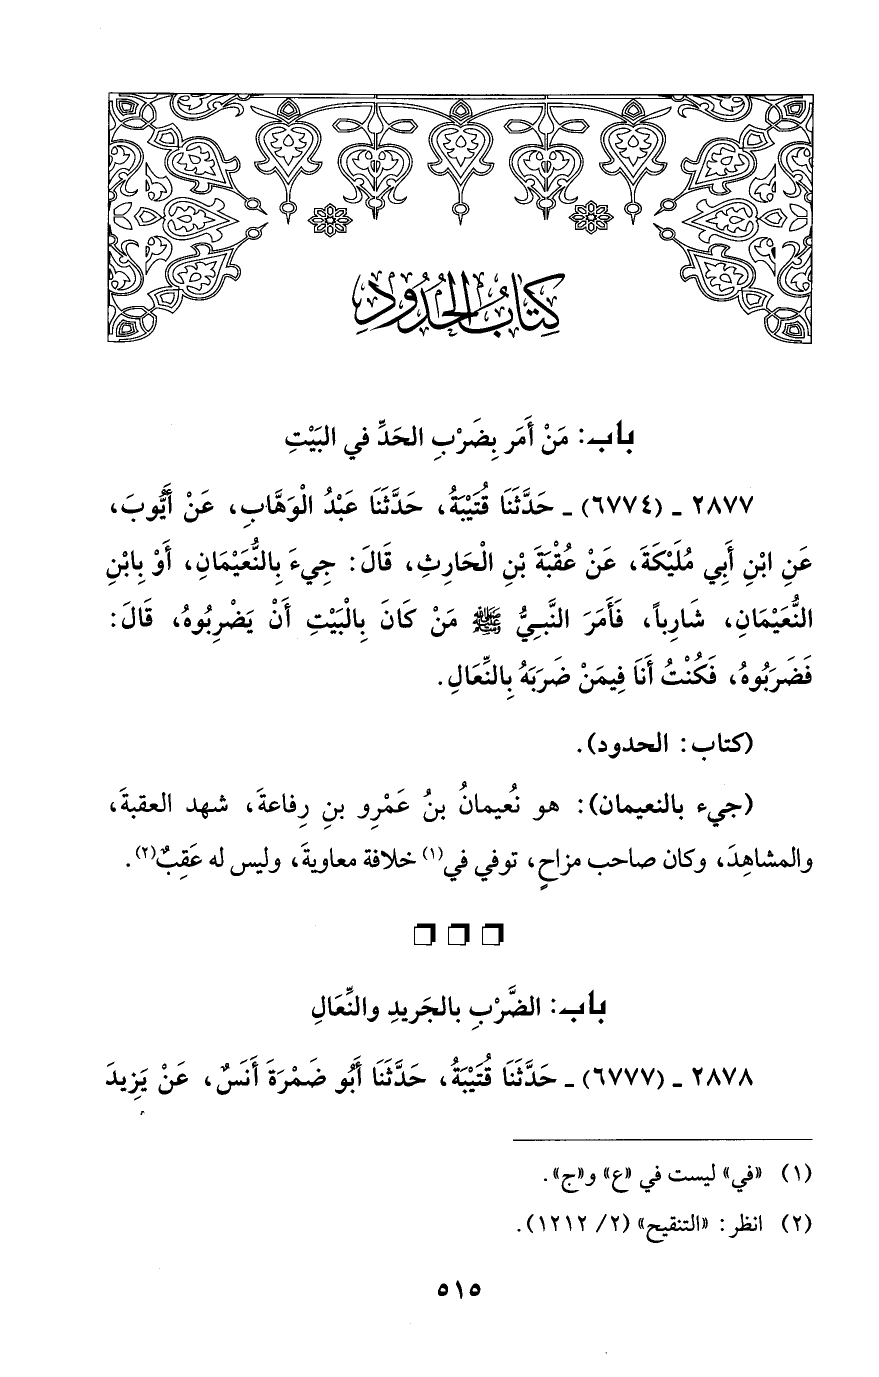 كِتَابُ الحُدُودِ
باب: مَنْ أَمَر بِضَرْبِ الحَدِّ في البَيْتِ
٢٨٧٧ ـ (٦٧٧٤) ـ حَدَّثَنَا قُتَيْبَةُ، حَدَّثَنَا عَبْدُ الْوَهَّابِ، عَنْ أَيُّوبَ،
عَنِ ابْنِ أَبِي مُلَيْكَةَ، عَنْ عُقْبَةَ بْنِ الْحَارِثِ، قَالَ: جِيءَ بِالنُّعَيْمَانِ، أَوْ بِابْنِ
النُّعَيْمَانِ، شَارِباً، فَأَمَرَ النَّبِيُّ ﷺ مَنْ كَانَ بِالْبَيْتِ أَنْ يَضْرِبُوهُ، قَالَ:
فَضَرَبُوهُ، فَكُنْتُ أَنَا فِيمَنْ ضَرَبَهُ بِالنِّعَالِ.
(كتاب: الحدود).
(جيء بالنعيمان): هو نُعيمانُ بنُ عَمْرِو بنِ رِفاعةَ، شهد العقبةَ،
والمشاهِدَ، وكان صاحب مزاحٍ، توفي في(١) خلافة معاويةَ، وليس له عَقِبٌ(٢).
باب: الضَّرْبِ بالجَريدِ والنِّعَالِ
٢٨٧٨ ـ (٦٧٧٧) ـ حَدَّثَنَا قُتَيْبَةُ، حَدَّثَنَا أَبُو ضَمْرَةَ أَنَسٌ، عَنْ يَزِيدَ
(١) «في» ليست في «ع» و«ج».
(٢) انظر: «التنقيح» (٢/ ١٢١٢).
٥١٥